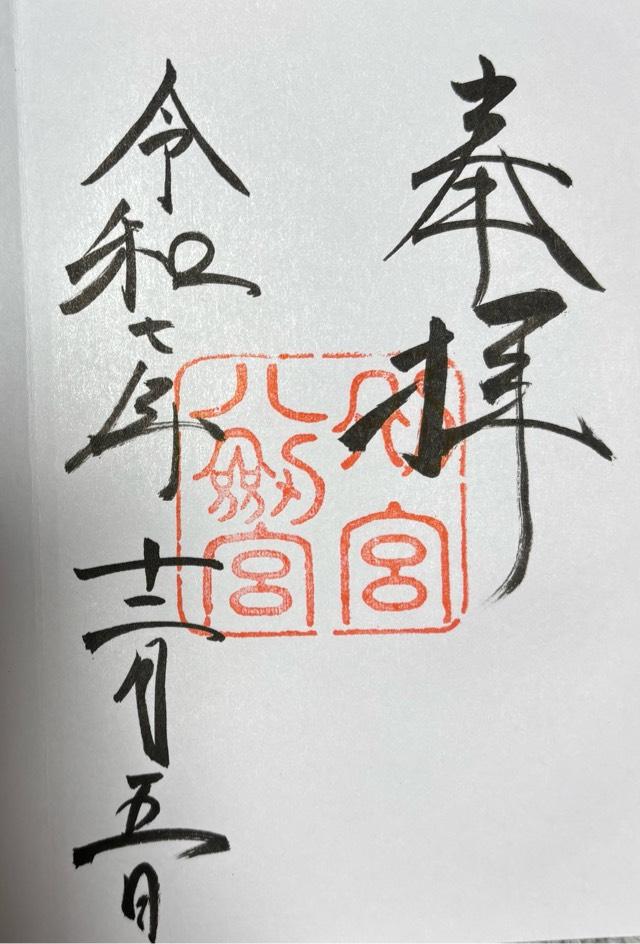 奉拝
別宮
八剣宮
令和七年十二月五日